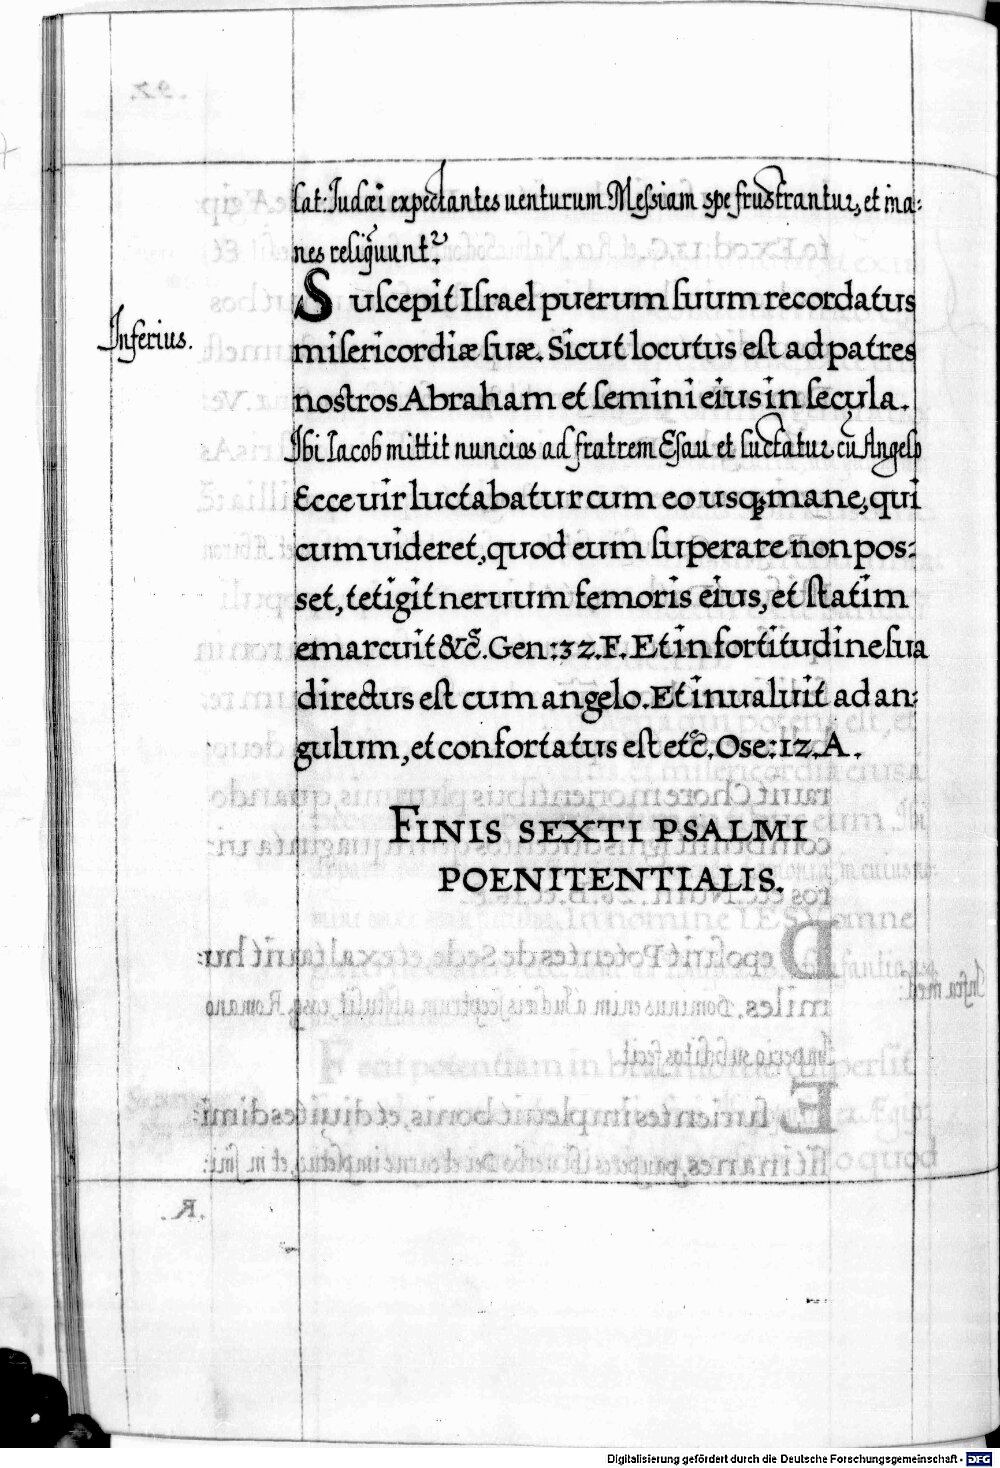 sat: Iudæi expectantes uenturum Messiam spe frustrantur, et ina:
nes relinquunt.^r
Suscepit Israel puerum suum recordatus
Inferius.
misericordiæ suæ. Sicut locutus est ad patres
nostros Abraham et semini eius in secula.
Ibi Iacob mittit nuncios ad fratrem Esau et luctatur cũ Angelo
Ecce uir luctabatur cum eo usq; mane, qui
cum uideret, quod eum superare non pos:
set, tetigit neruum femoris eius, et statim
emarcuit &c̃. Gen: 32. F. Et in fortitudine sua
directus est cum angelo. Et inualuit ad an:
gulum, et confortatus est etc̃. Ose: 12. A.
FINIS SEXTI PSALMI
POENITENTIALIS.
Digitalisierung gefördert durch die Deutsche Forschungsgemeinschaft - DFG